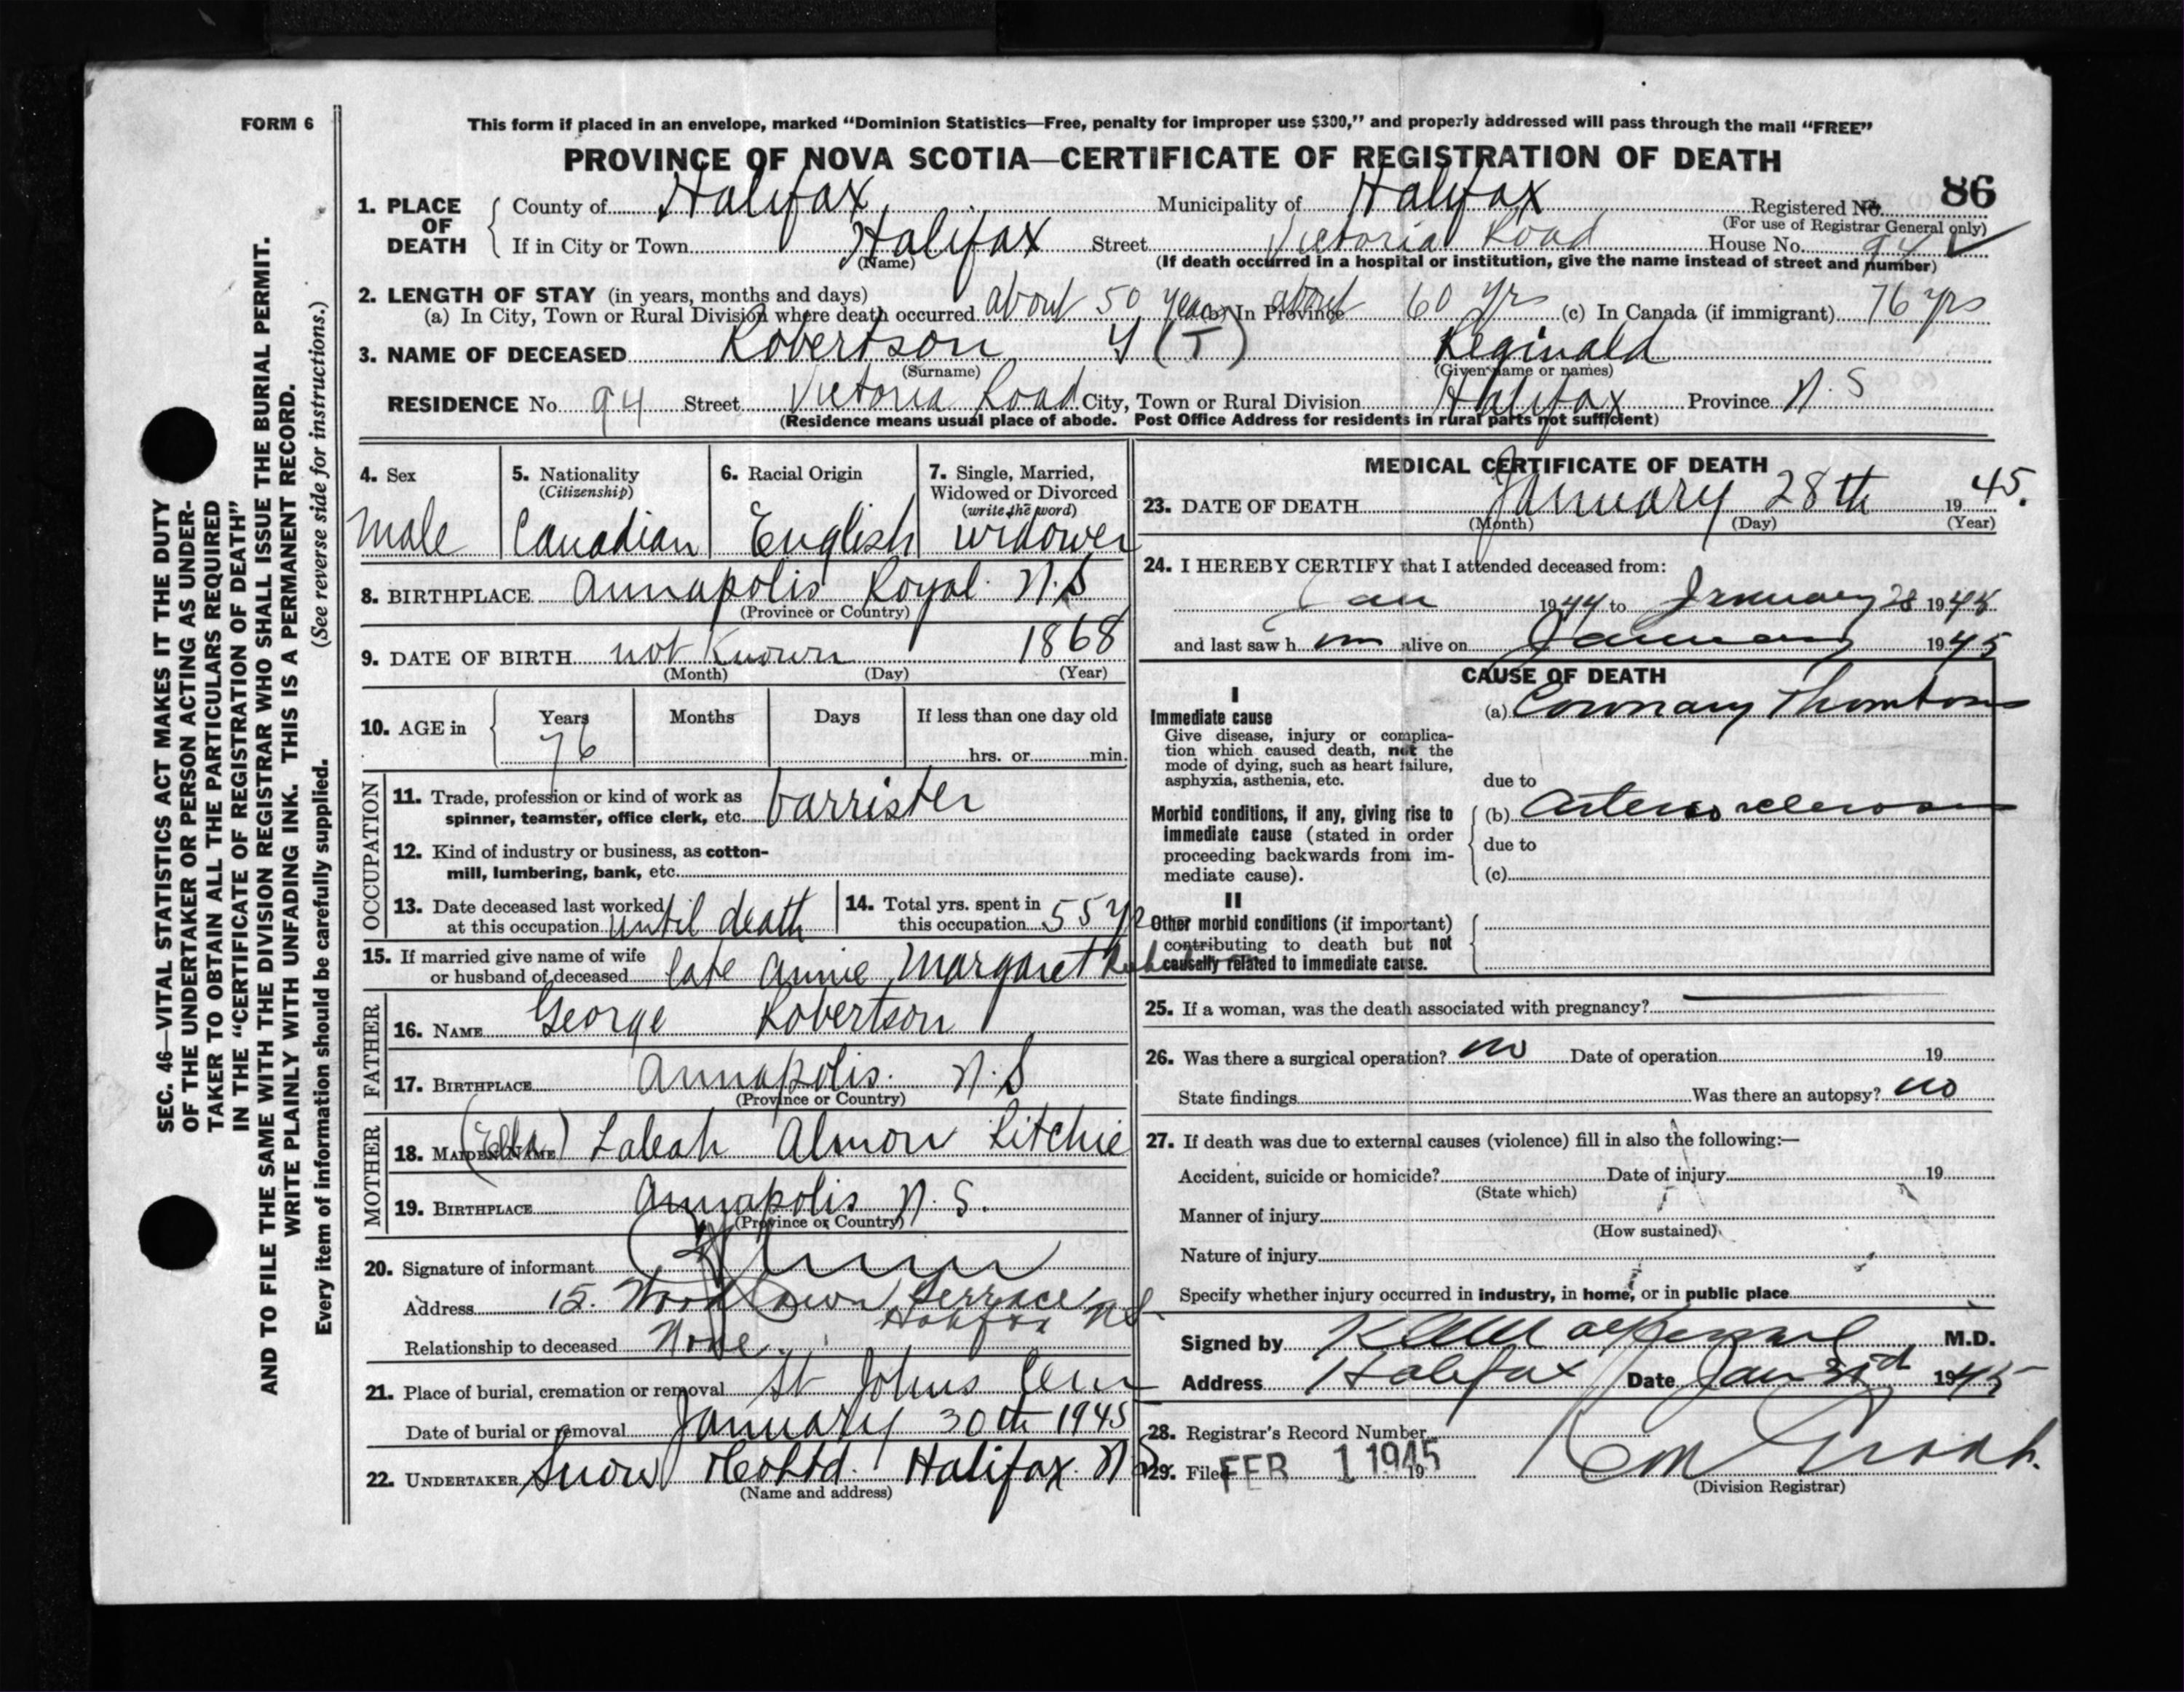 FORM 6
This form if placed in an envelope, marked “Dominion Statistics—Free, penalty for improper use $300,” and properly addressed will pass through the mail “FREE”
PROVINCE OF NOVA SCOTIA—CERTIFICATE OF REGISTRATION OF DEATH
86
1. PLACE OF DEATH { County of Halifax Municipality of Halifax Registered No.
(For use of Registrar General only)
If in City or Town Halifax Street Victoria Road House No. 94
(Name) (If death occurred in a hospital or institution, give the name instead of street and number)
2. LENGTH OF STAY (in years, months and days)
(a) In City, Town or Rural Division where death occurred about 50 years (b) In Province about 60 yrs (c) In Canada (if immigrant) 76 yrs
3. NAME OF DECEASED Robertson (T) Reginald
(Surname) (Given name or names)
RESIDENCE No. 94 Street Victoria Road City, Town or Rural Division Halifax Province N. S
(Residence means usual place of abode. Post Office Address for residents in rural parts not sufficient)
4. Sex male
5. Nationality (Citizenship) Canadian
6. Racial Origin English
7. Single, Married, Widowed or Divorced (write the word) widower
8. BIRTHPLACE Annapolis Royal N.S
(Province or Country)
9. DATE OF BIRTH not known 1868
(Month) (Day) (Year)
10. AGE in { Years 76 Months Days If less than one day old
hrs. or min.
OCCUPATION
11. Trade, profession or kind of work as spinner, teamster, office clerk, etc. barrister
12. Kind of industry or business, as cotton-mill, lumbering, bank, etc.
13. Date deceased last worked at this occupation until death
14. Total yrs. spent in this occupation 55 yrs
15. If married give name of wife or husband of deceased late Annie Margaret
FATHER
16. NAME George Robertson
17. BIRTHPLACE Annapolis. N.S
(Province or Country)
MOTHER
18. MAIDEN NAME Laleah Almon Ritchie
19. BIRTHPLACE Annapolis N. S.
(Province or Country)
20. Signature of informant
Address 15. Woodlawn Terrace Halifax NS
Relationship to deceased None
21. Place of burial, cremation or removal St Johns Cem
Date of burial or removal January 30th 1945
22. UNDERTAKER Snow & Co Ltd. Halifax. N S
(Name and address)
MEDICAL CERTIFICATE OF DEATH
23. DATE OF DEATH January 28th 19 45.
(Month) (Day) (Year)
24. I HEREBY CERTIFY that I attended deceased from:
Jan 1944 to January 28 1945
and last saw h im alive on January 1945
CAUSE OF DEATH
I
Immediate cause (a) Coronary Thrombosis
Give disease, injury or complica-
tion which caused death, not the
mode of dying, such as heart failure,
asphyxia, asthenia, etc. due to
Morbid conditions, if any, giving rise to (b) Arterio sclerosis
immediate cause (stated in order
proceeding backwards from im- due to
mediate cause). (c)
II
Other morbid conditions (if important)
contributing to death but not
causally related to immediate cause.
25. If a woman, was the death associated with pregnancy?
26. Was there a surgical operation? no Date of operation 19
State findings Was there an autopsy? no
27. If death was due to external causes (violence) fill in also the following:—
Accident, suicide or homicide? Date of injury 19
(State which)
Manner of injury
(How sustained)
Nature of injury
Specify whether injury occurred in industry, in home, or in public place
Signed by M.D.
Address Halifax Date Jan 1945
28. Registrar's Record Number
29. Filed FEB 1 1945 19
(Division Registrar)
SEC. 46—VITAL STATISTICS ACT MAKES IT THE DUTY
OF THE UNDERTAKER OR PERSON ACTING AS UNDER-
TAKER TO OBTAIN ALL THE PARTICULARS REQUIRED
IN THE “CERTIFICATE OF REGISTRATION OF DEATH”
AND TO FILE THE SAME WITH THE DIVISION REGISTRAR WHO SHALL ISSUE THE BURIAL PERMIT.
WRITE PLAINLY WITH UNFADING INK. THIS IS A PERMANENT RECORD.
Every item of information should be carefully supplied. (See reverse side for instructions.)